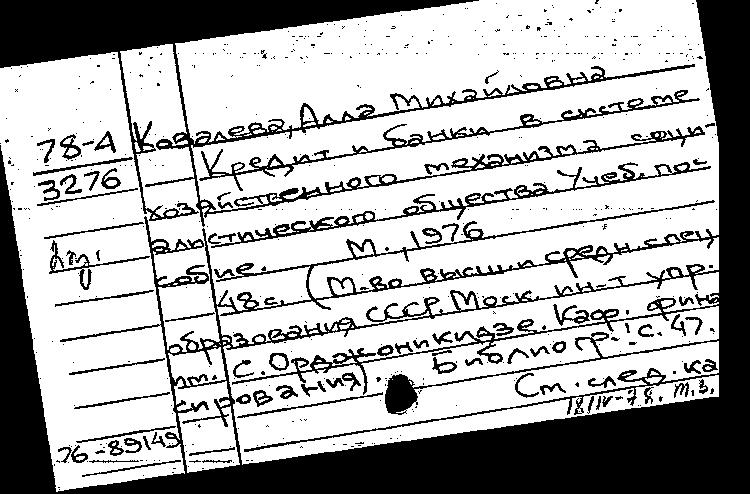 78-4
3276
Ковалева, Алла Михайловна
Кредит и банки в системе
хозяйственного механизма соци-
алистического общества. Учеб. по-
собие. М., 1976
48 с. (М-во высш. и средн. спец.
образования СССР. Моск. ин-т упр.
им. С. Орджоникидзе. Каф. фина
сирования). Библиогр.: с. 47.
См. след. ка
18/IV-78. м.з.
76-89149